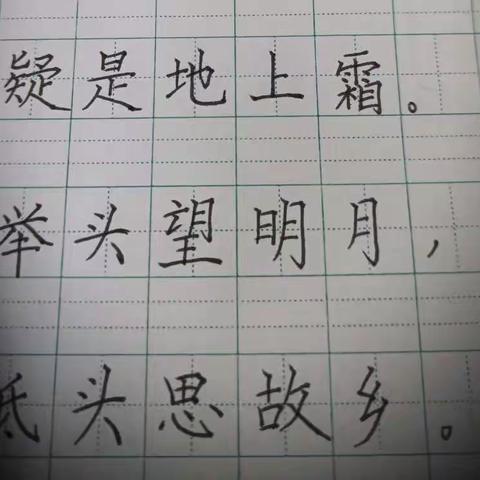 疑是地上霜。
举头望明月,
低头思故乡。